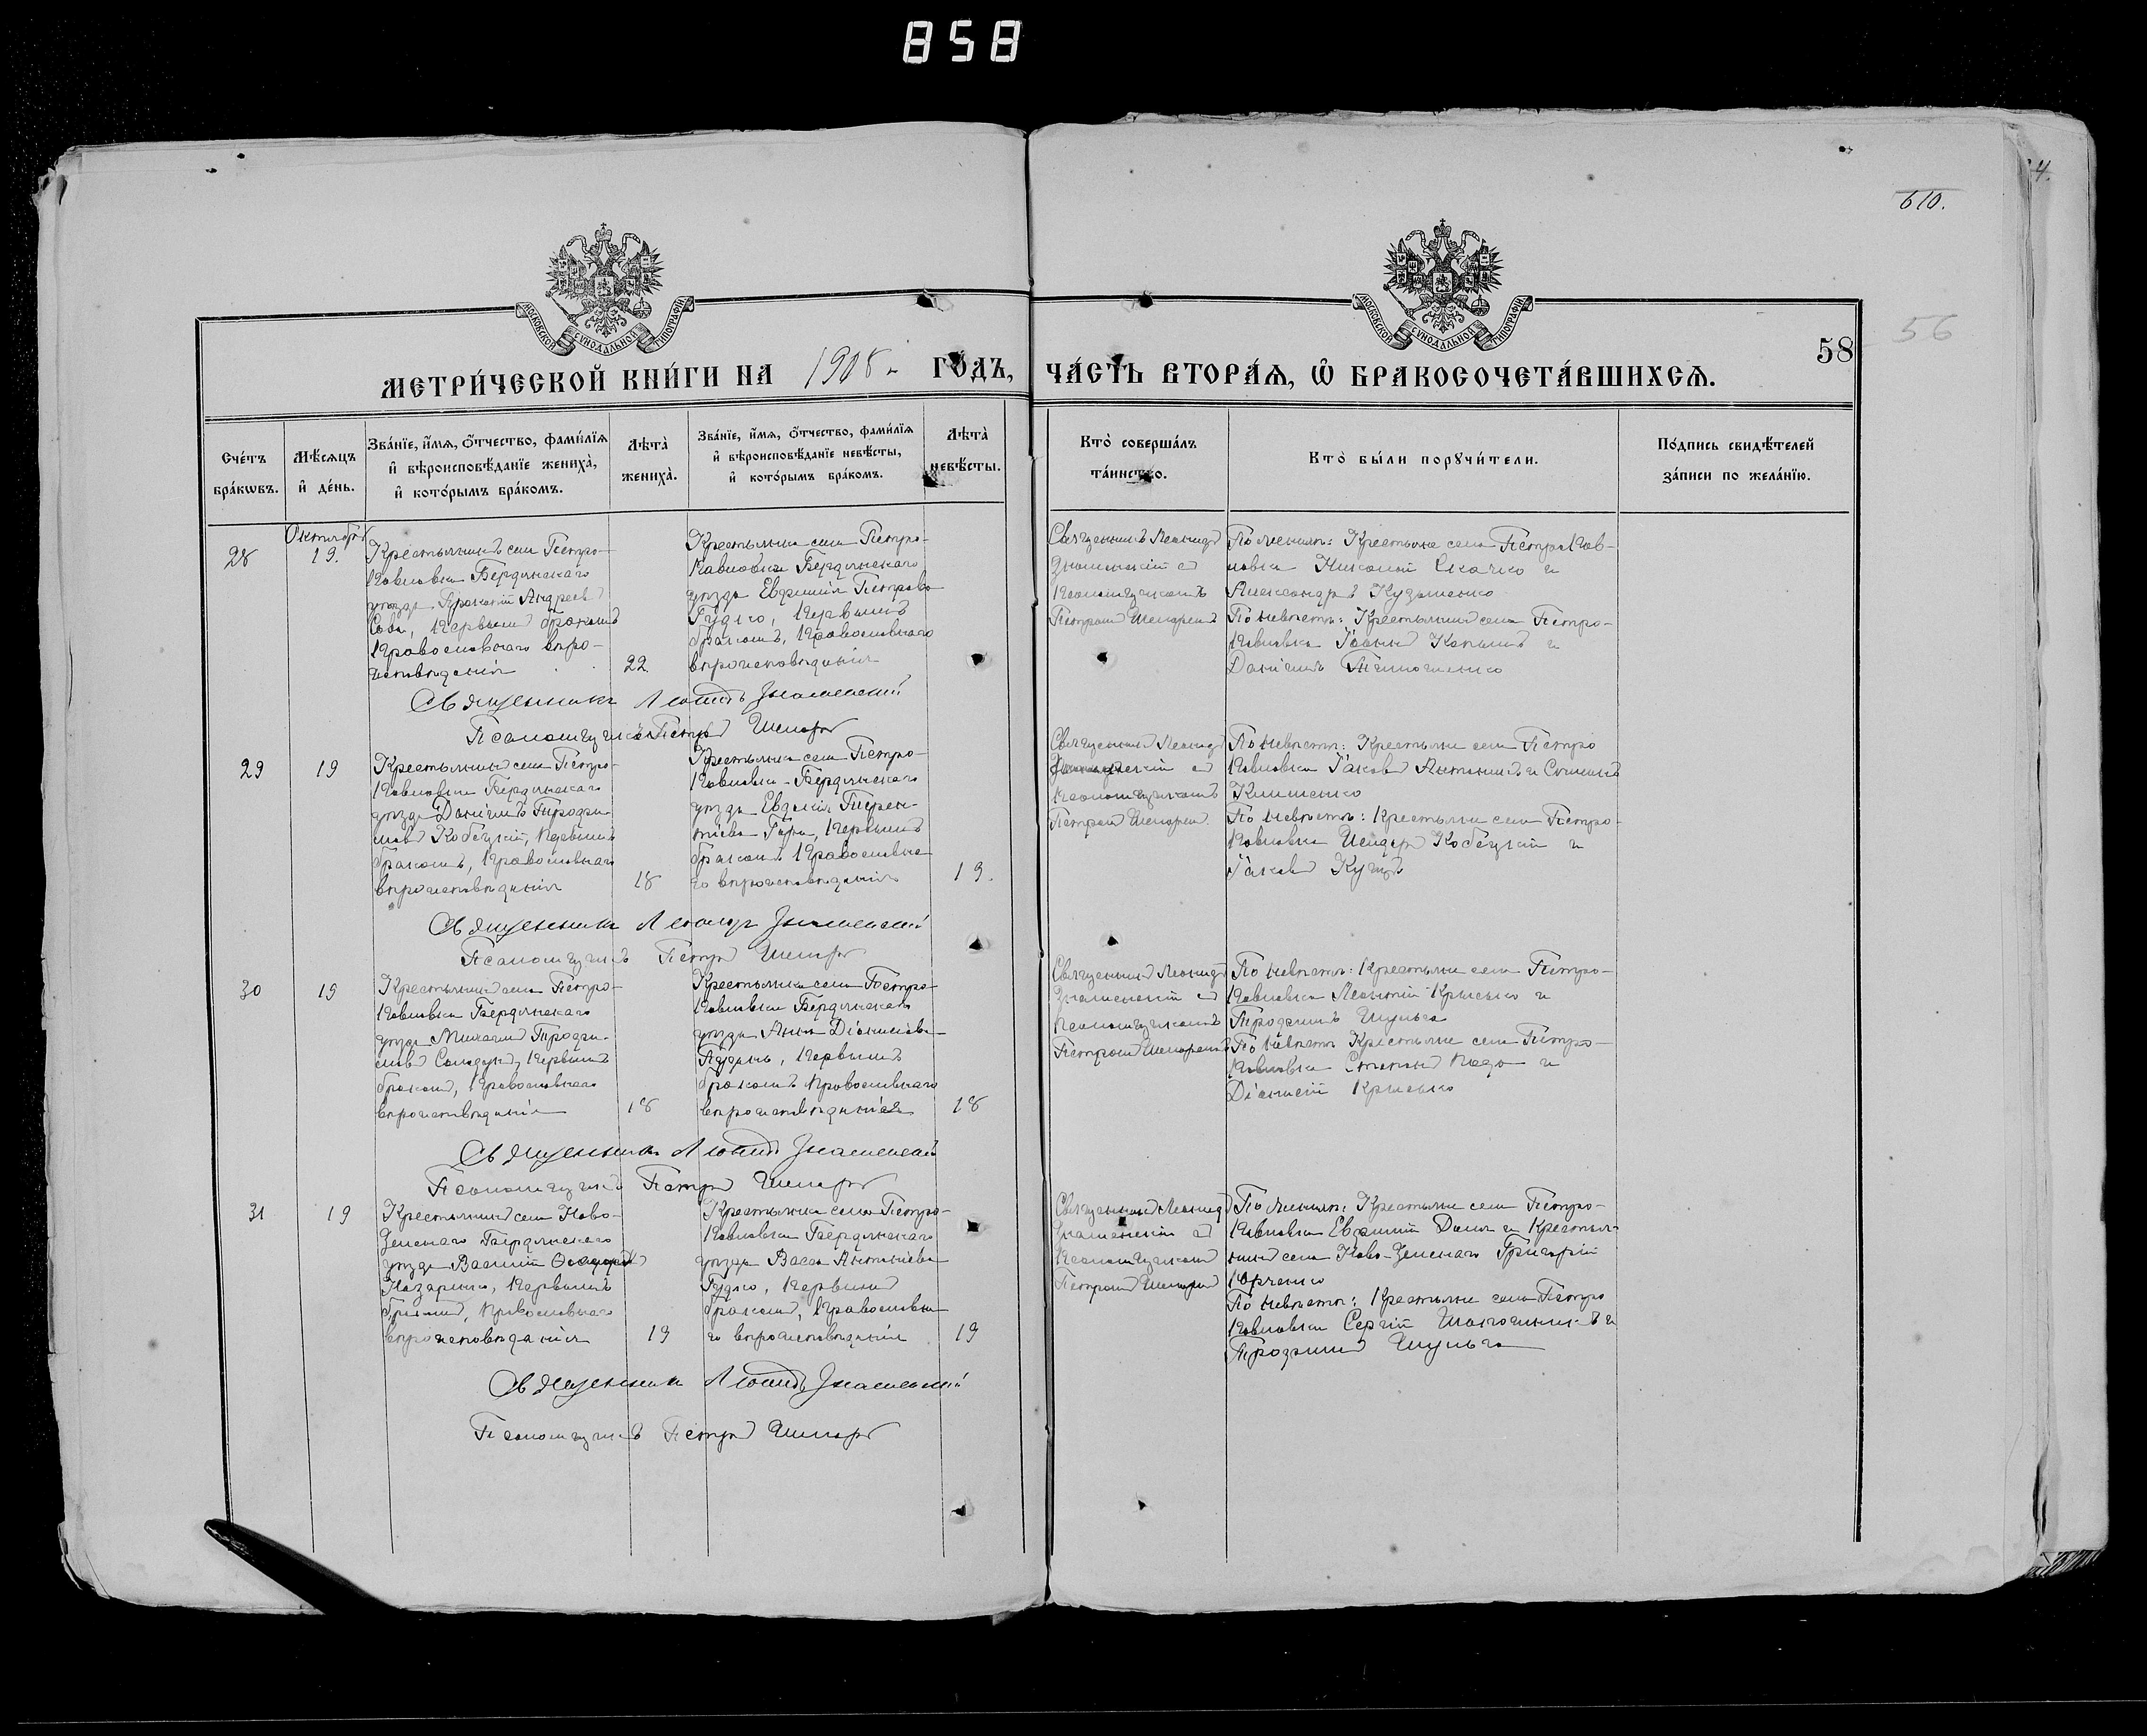 858
4.
610.
56
58
МОСКОВСКОЙ СѴНОДАЛЬНОЙ ТИПОГРАФІИ
МОСКОВСКОЙ СѴНОДАЛЬНОЙ ТИПОГРАФІИ
МЕТРИ́ЧЕСКОЙ КНИ́ГИ НА 1908 ГО́ДЪ, ЧА́СТЬ ВТОРА́Ѧ, Ѽ БРАКОСОЧЕТА́ВШИХСѦ.
Сче́тъ бра́кѡвъ.
Мѣ́сѧцъ и҆ де́нь.
Зва́нїе, и҆́мѧ, ѻ҆́тчество, фами́лїѧ
и҆ вѣроисповѣ́данїе жениха̀,
и҆ кото́рымъ бра́комъ.
Лѣ́та̀
жениха̀.
Зва́нїе, и҆́мѧ, ѻ҆́тчество, фами́лїѧ
и҆ вѣроисповѣ́данїе невѣ́сты,
и҆ кото́рымъ бра́комъ.
Лѣ́та̀
невѣ́сты.
Кто̀ соверша́лъ
та́инство.
Кто̀ бы́ли порꙋчи́тели.
По́дпись свидѣ́телей
за́писи по жела́нїю.
28
Октября
19.
Крестьянинъ села Петро-
павловки Бердянскаго
уезда Прокопій Андреевъ
Сова, первымъ бракомъ
православнаго веро-
исповеданія
22
Крестьянка села Петро-
павловки Бердянскаго
уезда Евфимія Петрова
Гудко, первымъ
бракомъ, православнаго
вероисповеданія
Священникъ Леонидъ
Знаменскій с
псаломщикомъ
Петромъ
По женихе: Крестьяне села Петропав-
ловки Никонъ Скачко и
Александръ Кузьменко
По невесте: Крестьяне села Петро-
павловки Іоаннъ и
Даніилъ
Священникъ Леонидъ Знаменскій
Псаломщикъ Петръ
29
19
Крестьянинъ села Петро-
павловки Бердянскаго
уезда Даніилъ Трофи-
мовъ Кобецкій, первымъ
бракомъ, православнаго
вероисповеданія
18
Крестьянка села Петро-
павловки Бердянскаго
уезда Евдокія Терен-
тіева первымъ
бракомъ православна-
го вероисповеданія
19.
Священникъ Леонидъ
Знаменскій с
псаломщикомъ
Петромъ
По невесте: Крестьяне села Петро
павловки Іаковъ и
Клименко
По невесте: Крестьяне села Петро-
павловки Исидоръ Кобецкій и
Іаковъ
Священникъ Леонидъ Знаменскій
Псаломщикъ Петръ
30
19
Крестьянинъ села Петро-
павловки Бердянскаго
уезда Михаилъ Трофи-
мовъ первымъ
бракомъ, православнаго
вероисповеданія
18
Крестьянка села Петро-
павловки Бердянскаго
уезда Анна Діонисіева
первымъ
бракомъ православнаго
вероисповеданія
18
Священникъ Леонидъ
Знаменскій с
псаломщикомъ
Петромъ
По невесте: Крестьяне села Петро-
павловки Леонтій Крысько и
Трофимъ Шульга
По невесте Крестьяне села Петро-
павловки и
Діонисій Крысько
Священникъ Леонидъ Знаменскій
Псаломщикъ Петръ
31
19
Крестьянинъ села Ново-
Бердянскаго
уезда Василій Феодоровъ
Назаренко, первымъ
бракомъ, православнаго
вероисповеданія
19
Крестьянка села Петро-
павловки Бердянскаго
уезда Васса
Гудко, первымъ
бракомъ, православна-
го вероисповеданія
19
Священникъ Леонидъ
Знаменскій с
псаломщикомъ
Петромъ
По женихе: Крестьяне села Петро-
павловки Евфимій и Крестья-
нинъ села Ново- Григорій
Юрченко
По невесте: Крестьяне села Петро
павловки Сергій и
Трофимъ Шульга
Священникъ Леонидъ Знаменскій
Псаломщикъ Петръ